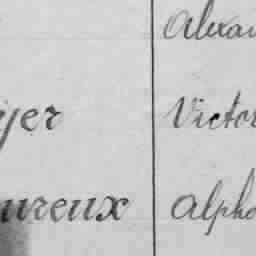 Alexan
yer Victor
ureux Alpho